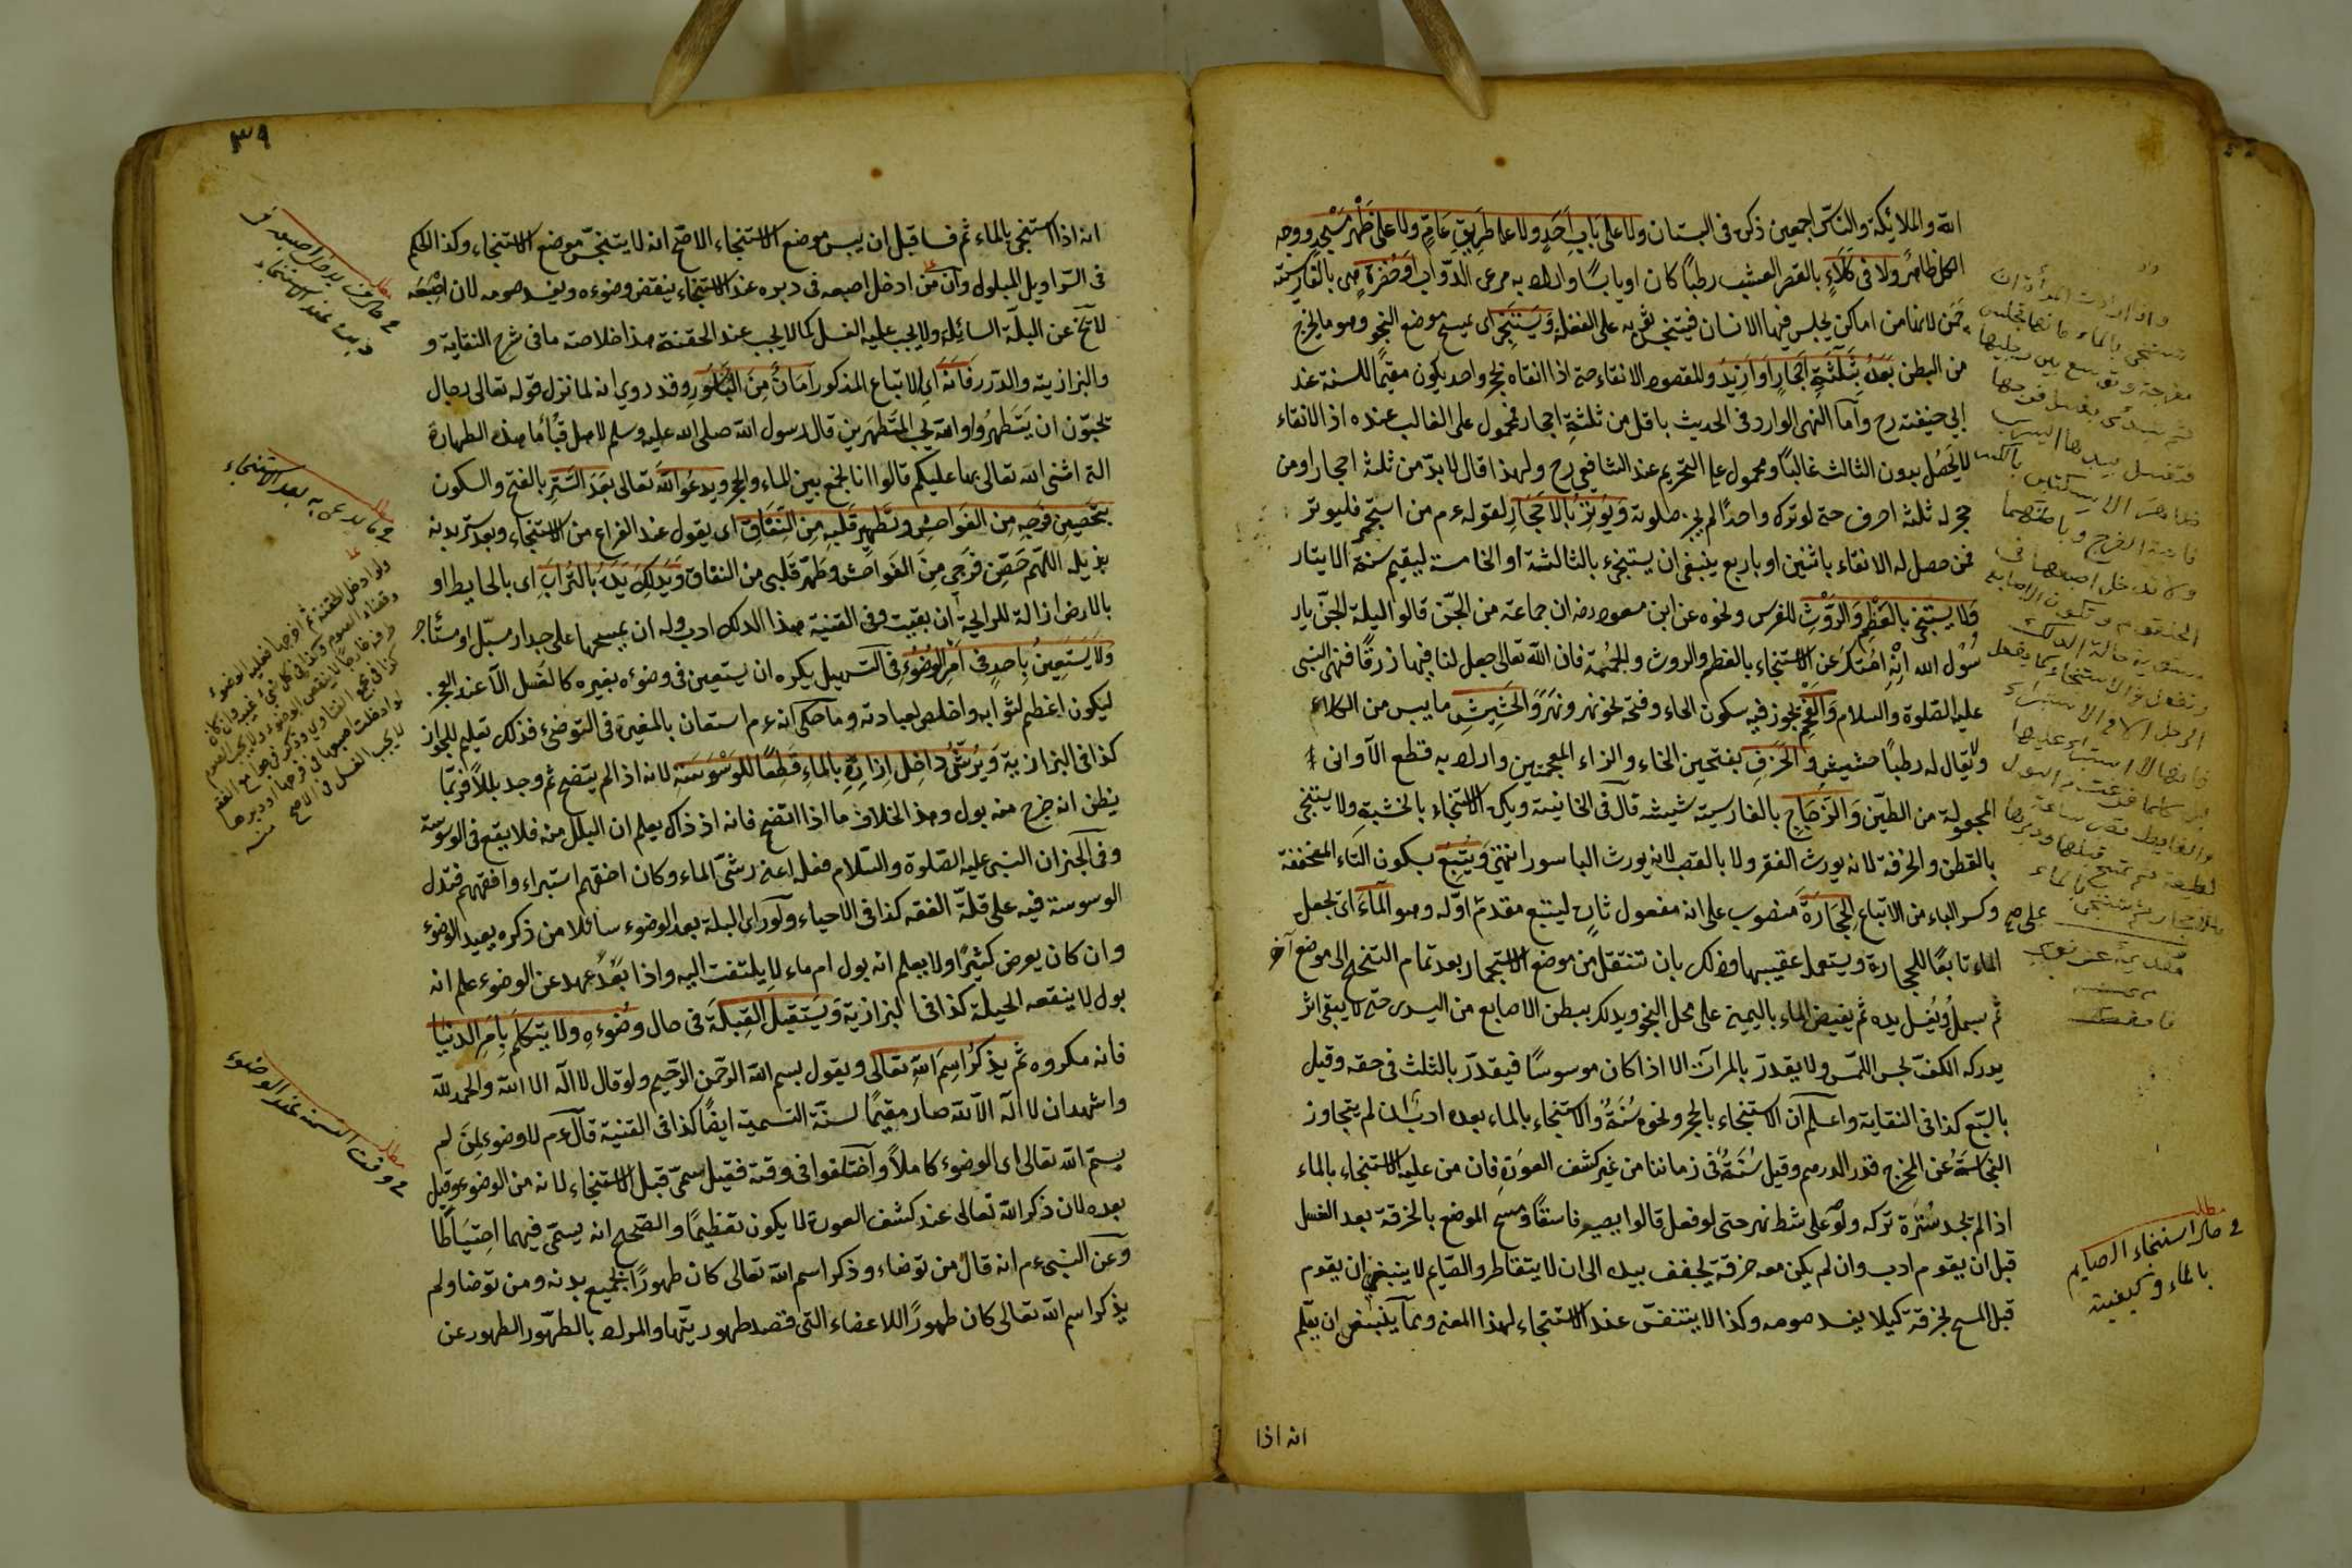 الله والملائكة والناس اجمعين ذكره فى البستان ولا على باب احد ولا على طريق عام ولا على ظهر مسجد ووجه
الكل ظاهر ولا فى كلاء بالقصر العشب رطبا كان او يابسا والمراد به مرعى الدواب او حفرة هى بالفارسية
لانها من اماكن يجلس فيها الانسان فيتنجس ثوبه على الغفلة ويستنجى اى يمسح موضع النجو وهو ما يخرج
من البطن بعده بثلثة احجار او ازيد والمقصود الانقاء حتى اذا انقاه بحجر واحد يكون مقيما للسنة عند
ابى حنيفة رح واما النهى الوارد فى الحديث باقل من ثلثة احجار فمحمول على الغالب عنده اذ الانقاء
لا يحصل بدون الثالث غالبا ومحمول على التحريم عند الشافعى رح ولهذا قال لا بد من ثلثة احجار او من
حجر له ثلثة احرف حتى لو ترك واحدا لم يجز صلوته ويوتر بالاحجار لقوله ءم من استجمر فليوتر
فمن حصل له الانقاء باثنين او باربع ينبغى ان يستنجى بالثالثة او الخامسة ليقيم سنة الايتار
ولا يستنجى بالعظم والروث للفرس ونحوه عن ابن مسعود رضه ان جماعة من الجن قالوا ليلة الجن يا ر
سول الله انه امتك عن الاستنجاء بالعظم والروث والحممة فان الله تعالى جعل لنا فيها رزقا فنهى النبى
عليه الصلوة والسلام والفحم يجوز فيه سكون الحاء وفتحه نحو نهر ونهر والحشيش ما يبس من الكلاء
ولا يقال له رطبا حشيش والخزف بفتحتين الخاء والزاء المعجمتين واراد به قطع الاوانى
المعمولة من الطين والزجاج بالفارسية شيشه قال فى الخانية ويكره الاستنجاء بالخشبة ولا يستنجى
بالقطن والخرقة لانه يورث الفقر ولا بالقصب لانه يورث الباسور انتهى ويتبع بسكون التاء المخففة
وكسر الباء من الاتباع الحجارة منصوب على انه مفعول ثان ليتبع مقدم اوله وهو الماء اى يجعل
الماء تابعا للحجارة ويستعمل عقيبها وذلك بان تنتقل من موضع الاستجمار بعد تمام التنحنح الى موضع آخر
ثم يسمل ويغسل يده ثم يفيض الماء باليمنى على محل النجو ويدلك ببطن الاصابع من اليسرى حتى لا يبقى اثر
يدركه الكف بحس اللمس ولا يقدر بالمرات الا اذا كان موسوسا فيقدر بالثلث فى حقه وقيل
بالسبع كذا فى النقاية واعلم ان الاستنجاء بالحجر ونحوه سنة والاستنجاء بالماء بعده ادب ان لم يتجاوز
النجاسة عن المخرج قدر الدرهم وقيل سنة فى زماننا من غير كشف العورة فان من عليه الاستنجاء بالماء
اذا لم يجد سترة تركه ولو على شط نهر حتى لو فعل قالوا يصير فاسقا ومسح الموضع بالخرقة بعد الغسل
قبل ان يقوم ادب وان لم يكن معه خرقة يجفف بيده الى ان لا يتقاطر والصايم لا ينبغى ان يقوم
قبل المسح بخرقة كيلا يفسد صومه وكذا لا يتنفس عند الاستنجاء لهذا المعنى ومما ينبغى ان يعلم
انه اذا
فى حال استنجاء الصايم
بالماء وكيفيته
٣٩
انه اذا استنجى بالماء ثم فسا قبل ان ييبس موضع الاستنجاء الاصح انه لا يتنجس موضع الاستنجاء وكذا الحكم
فى السراويل المبلول وان من ادخل اصبعه فى دبره عند الاستنجاء ينقض وضوءه ويفسد صومه لان اصبعه
لا تخ عن البلة السائلة ولا يجب عليه الغسل كما لا يجب عند الحقنة هذا خلاصة ما فى شرح النقاية و
والبزازية والدرر فانه اى الاتباع المذكور امان من الباسور وقد روى انه لما نزل قوله تعالى رجال
يحبون ان يتطهروا والله يحب المتطهرين قال رسول الله صلى الله عليه وسلم لاهل قباء ما هذه الطهارة
التى اثنى الله تعالى بها عليكم قالوا انا نجمع بين الماء والحجر ويدعو الله تعالى بعد الستر بالفتح والسكون
بتحصين فرجه من الفواحش وتطهير قلبه من النفاق اى يقول عند الفراغ من الاستنجاء وبعد ستر بدنه
بذيله اللهم حصن فرجى من الفواحش وطهر قلبى من النفاق ويدلك يده بالتراب اى بالحايط او
بالارض ازالة للرايحة ان بقيت وفى القنية هذا الدلك ادب وله ان يمسحها على جدار مسبل او مستأجر
ولا يستعين باحد فى امر الوضوء فى التسهيل يكره ان يستعين فى وضوءه بغيره كالغسل الا عند العجز
ليكون اعظم لثوابه واخلص لعبادته وما حكى انه ءم استعان بالمغيرة فى التوضىء فذلك تعليم للجواز
كذا فى البزازية ويرش داخل ازاره بالماء قطعا للوسوسة لانه اذا لم ينتضح ثم وجد بللا فربما
يظن انه خرج منه بول وهذا بخلاف ما اذا انتضح فانه اذ ذاك يعلم ان البلل منه فلا يقع فى الوسوسة
وفى الخبر ان النبى عليه الصلوة والسلام فعله اعنى رش الماء وكان اخفهم استبراء وافقههم فتدل
الوسوسة فيه على قلة الفقه كذا فى الاحياء ولو راى البلة بعد الوضوء سائلا من ذكره يعيد الوضوء
وان كان يعرض كثيرا ولا يعلم انه بول ام ماء لا يلتفت اليه واذا بعد عهده عن الوضوء علم انه
بول لا ينفعه الحيلة كذا فى البزازية ويستقبل القبلة فى حال وضوءه ولا يتكلم بامر الدنيا
فانه مكروه ثم يذكر اسم الله تعالى ويقول بسم الله الرحمن الرحيم ولو قال لا اله الا الله والحمد لله
واشهد ان لا اله الا الله صار مقيما لسنة التسمية ايضا كذا فى القنية قال ءم لا وضوء لمن لم
يسم الله تعالى اى الوضوء كاملا واختلفوا فى وقته فقيل سمى قبل الاستنجاء لانه من الوضوء وقيل
بعده لان ذكر الله تعالى عند كشف العورة لا يكون تعظيما والصحيح انه يسمى فيهما احتياطا
وعن النبى ءم انه قال من توضاء وذكر اسم الله تعالى كان طهورا لجميع بدنه ومن توضا ولم
يذكر اسم الله تعالى كان طهورا للاعضاء التى قصد طهوريتها والمراد بالطهور الطهور عن
فى ما يدعى به بعد الاستنجاء
فى وقت التسمية عند الوضوء